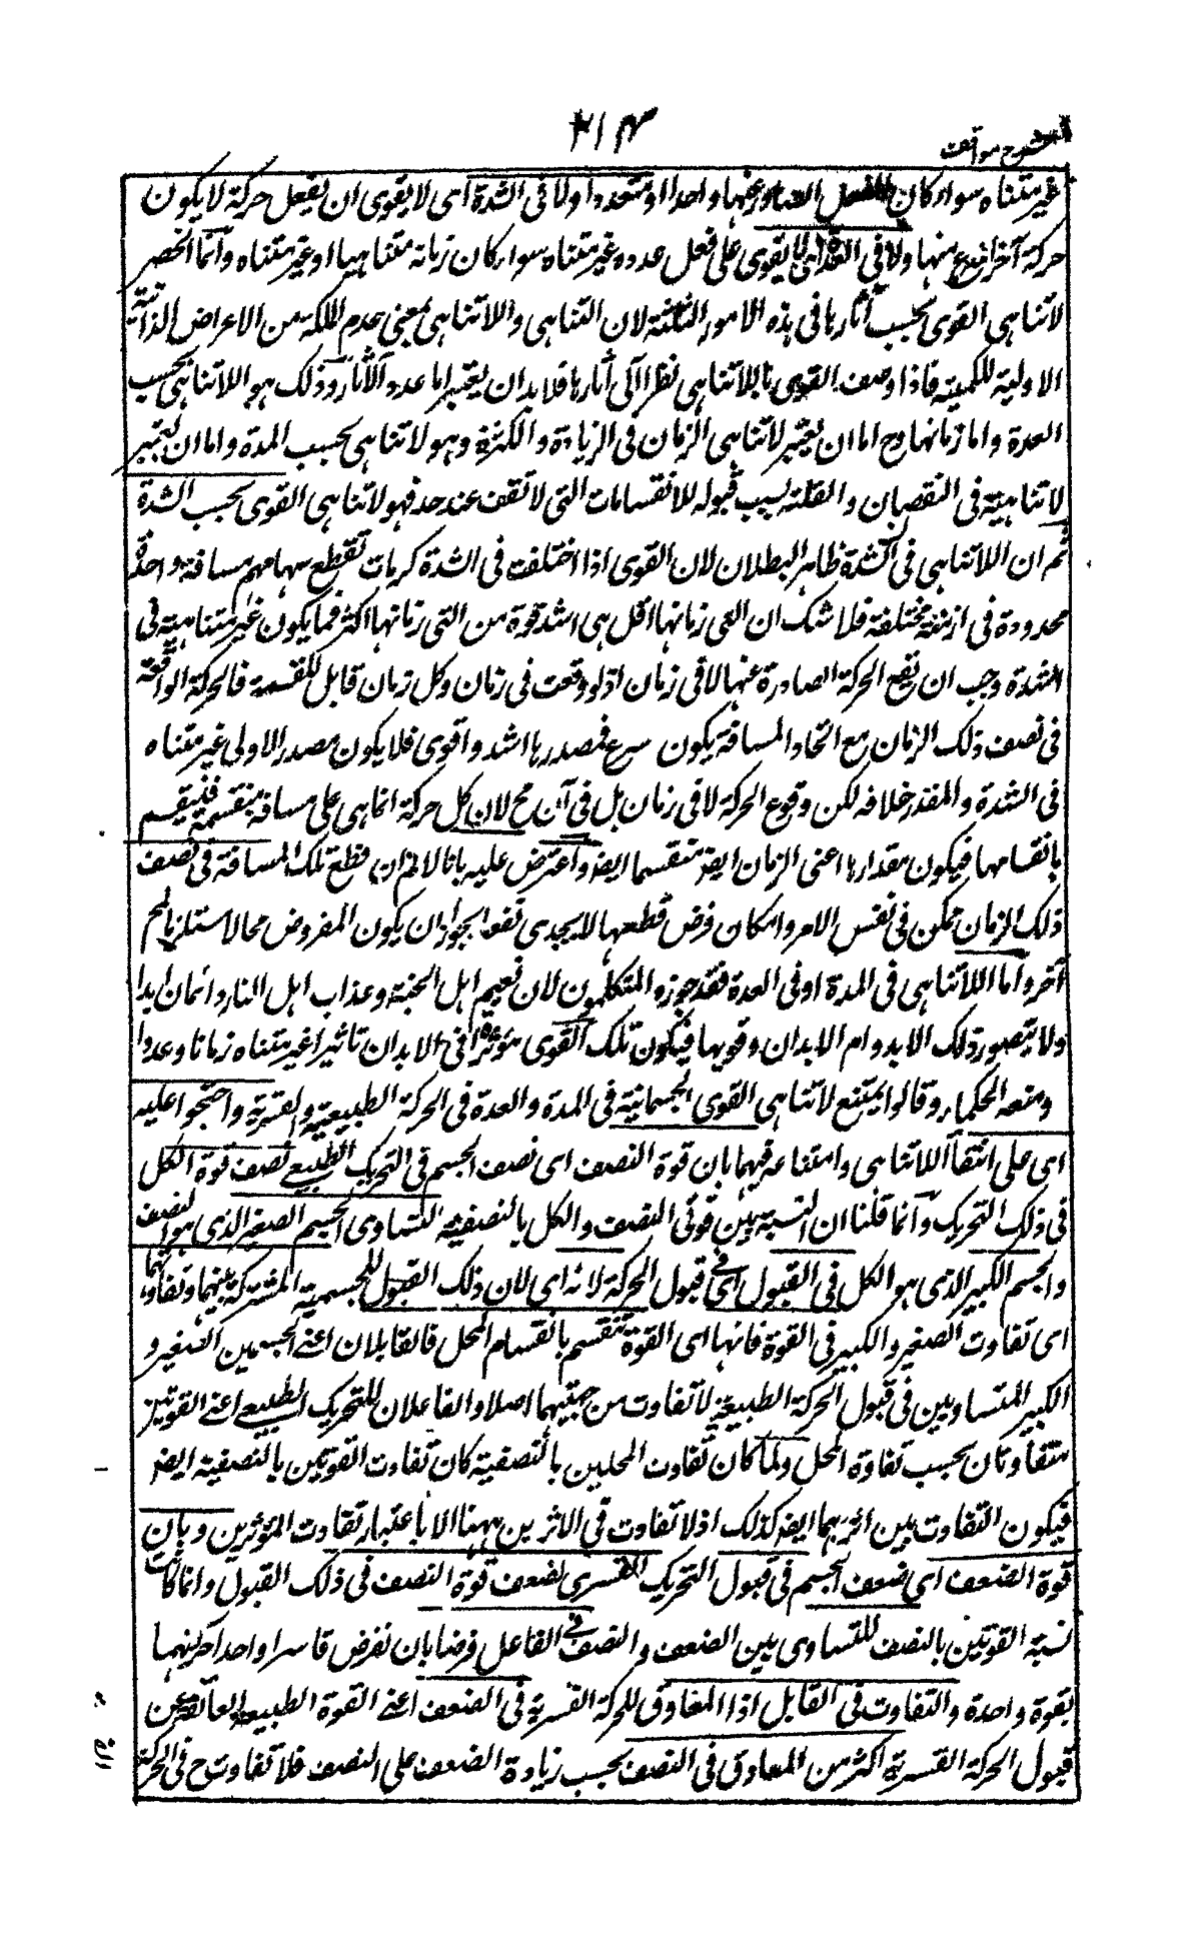 شرح مواقف
غير متناه سواء كان الفعل الصادر عنها واحدا او متعددا ولا فى الشدة اى لا يقوى ان يفعل حركة لا يكون
حركة آخر اسرع منها ولا فى العدة اى لا يقوى على فعل عدده غير متناه سواء كان زمانه متناهيا او غير متناه وانما انحصر
لا تناهى القوى بحسب آثارها فى هذه الامور الثلثة لان التناهى واللاتناهى بمعنى عدم الملكة من الاعراض الذاتية
الاولية للكمية فاذا وصف القوى باللاتناهى نظرا الى آثارها فلا بد ان يعتبر اما عدد الآثار وذلك هو اللاتناهى بحسب
العدة واما زمانها وح اما ان يعتبر لا تناهى الزمان فى الزيادة والكثرة وهو لا تناهى بحسب المدة واما ان يعتبر
لا تناهيته فى النقصان والقلة بسبب قبوله للانقسامات التى لا تقف عند حد فهو لا تناهى القوى بحسب الشدة
ثم ان اللاتناهى فى الشدة ظاهر البطلان لان القوى اذا اختلفت فى الشدة كرماة تقطع سهامهم مسافة واحدة
محدودة فى ازمنة مختلفة فلا شك ان التى زمانها اقل هى اشد قوة من التى زمانها اكثر فما يكون غير متناهية فى
الشدة وجب ان تقع الحركة الصادرة عنها لا فى زمان اذ لو وقعت فى زمان وكل زمان قابل للقسمة فالحركة الواقعة
فى نصف ذلك الزمان مع اتحاد المسافة يكون سرع فمصدرها اشد واقوى فلا يكون مصدر الاولى غير متناه
فى الشدة والمقدر خلافه لكن وقوع الحركة لا فى زمان بل فى آن مح لان كل حركة انما هى على مسافة منقسمة فينقسم
بانقسامها فيكون مقدارها اعنى الزمان ايضا منقسما ايضا واعترض عليه بانا لا نم ان قطع تلك المسافة فى نصف
ذلك الزمان ممكن فى نفس الامر وامكان فرض قطعها لا يجدى نفعا لجواز ان يكون المفروض محالا مستلزما لمح
آخر واما اللاتناهى فى المدة او فى العدة فقد جوزه المتكلمون لان نعيم اهل الجنة وعذاب اهل النار دائمان ابدا
ولا يتصور ذلك الا بدوام الابدان وقويها فيكون تلك القوى مؤثرة فى الابدان تاثيرا غير متناه زمانا وعددا
ومنعه الحكماء وقالوا يمتنع لا تناهى القوى الجسمانية فى المدة والعدة فى الحركة الطبيعية والقسرية واحتجوا عليه
اى على انتفاء اللاتناهى وامتناعه فيهما بان قوة النصف اى نصف الجسم فى التحريك الطبيعى نصف قوة الكل
فى ذلك التحريك وانما قلنا ان النسبة بين قوتى النصف والكل بالنصفية لتساوى الجسم الصغير الذى هو النصف
والجسم الكبير الذى هو الكل فى القبول اى فى قبول الحركة لانه اى لان ذلك القبول للجسمية المشتركة بينهما وتفاوتهما
اى تفاوت الصغير والكبير فى القوة فانها اى القوة تنقسم بانقسام المحل فالقابلان اعنى الجسمين الصغير و
الكبير المتساويين فى قبول الحركة الطبيعية لا تفاوت من جهتهما اصلا والفاعلان للتحريك الطبيعى اعنى القوتين
متفاوتان بحسب تفاوة المحل ولما كان تفاوت المحلين بالنصفية كان تفاوت القوتين بالنصفية ايضا
فيكون التفاوت بين اثريهما ايضا كذلك اذ لا تفاوت فى الاثرين ههنا الا باعتبار تفاوت المؤثرين وبان
قوة الضعف اى ضعف الجسم فى قبول التحريك القسرى لضعف قوة النصف فى ذلك القبول وانما كانت
نسبة القوتين بالنصف للتساوى بين الضعف والنصف فى الفاعل فرضا بان نفرض قاسرا واحدا حركهما
بقوة واحدة والتفاوت فى القابل اذ المعاوق للحركة القسرية فى الضعف اعنى القوة الطبيعية العائقة عن
قبول الحركة القسرية اكثر من المعاوق فى النصف بحسب زيادة الضعف على النصف فلا تفاوت ح فى الحركة